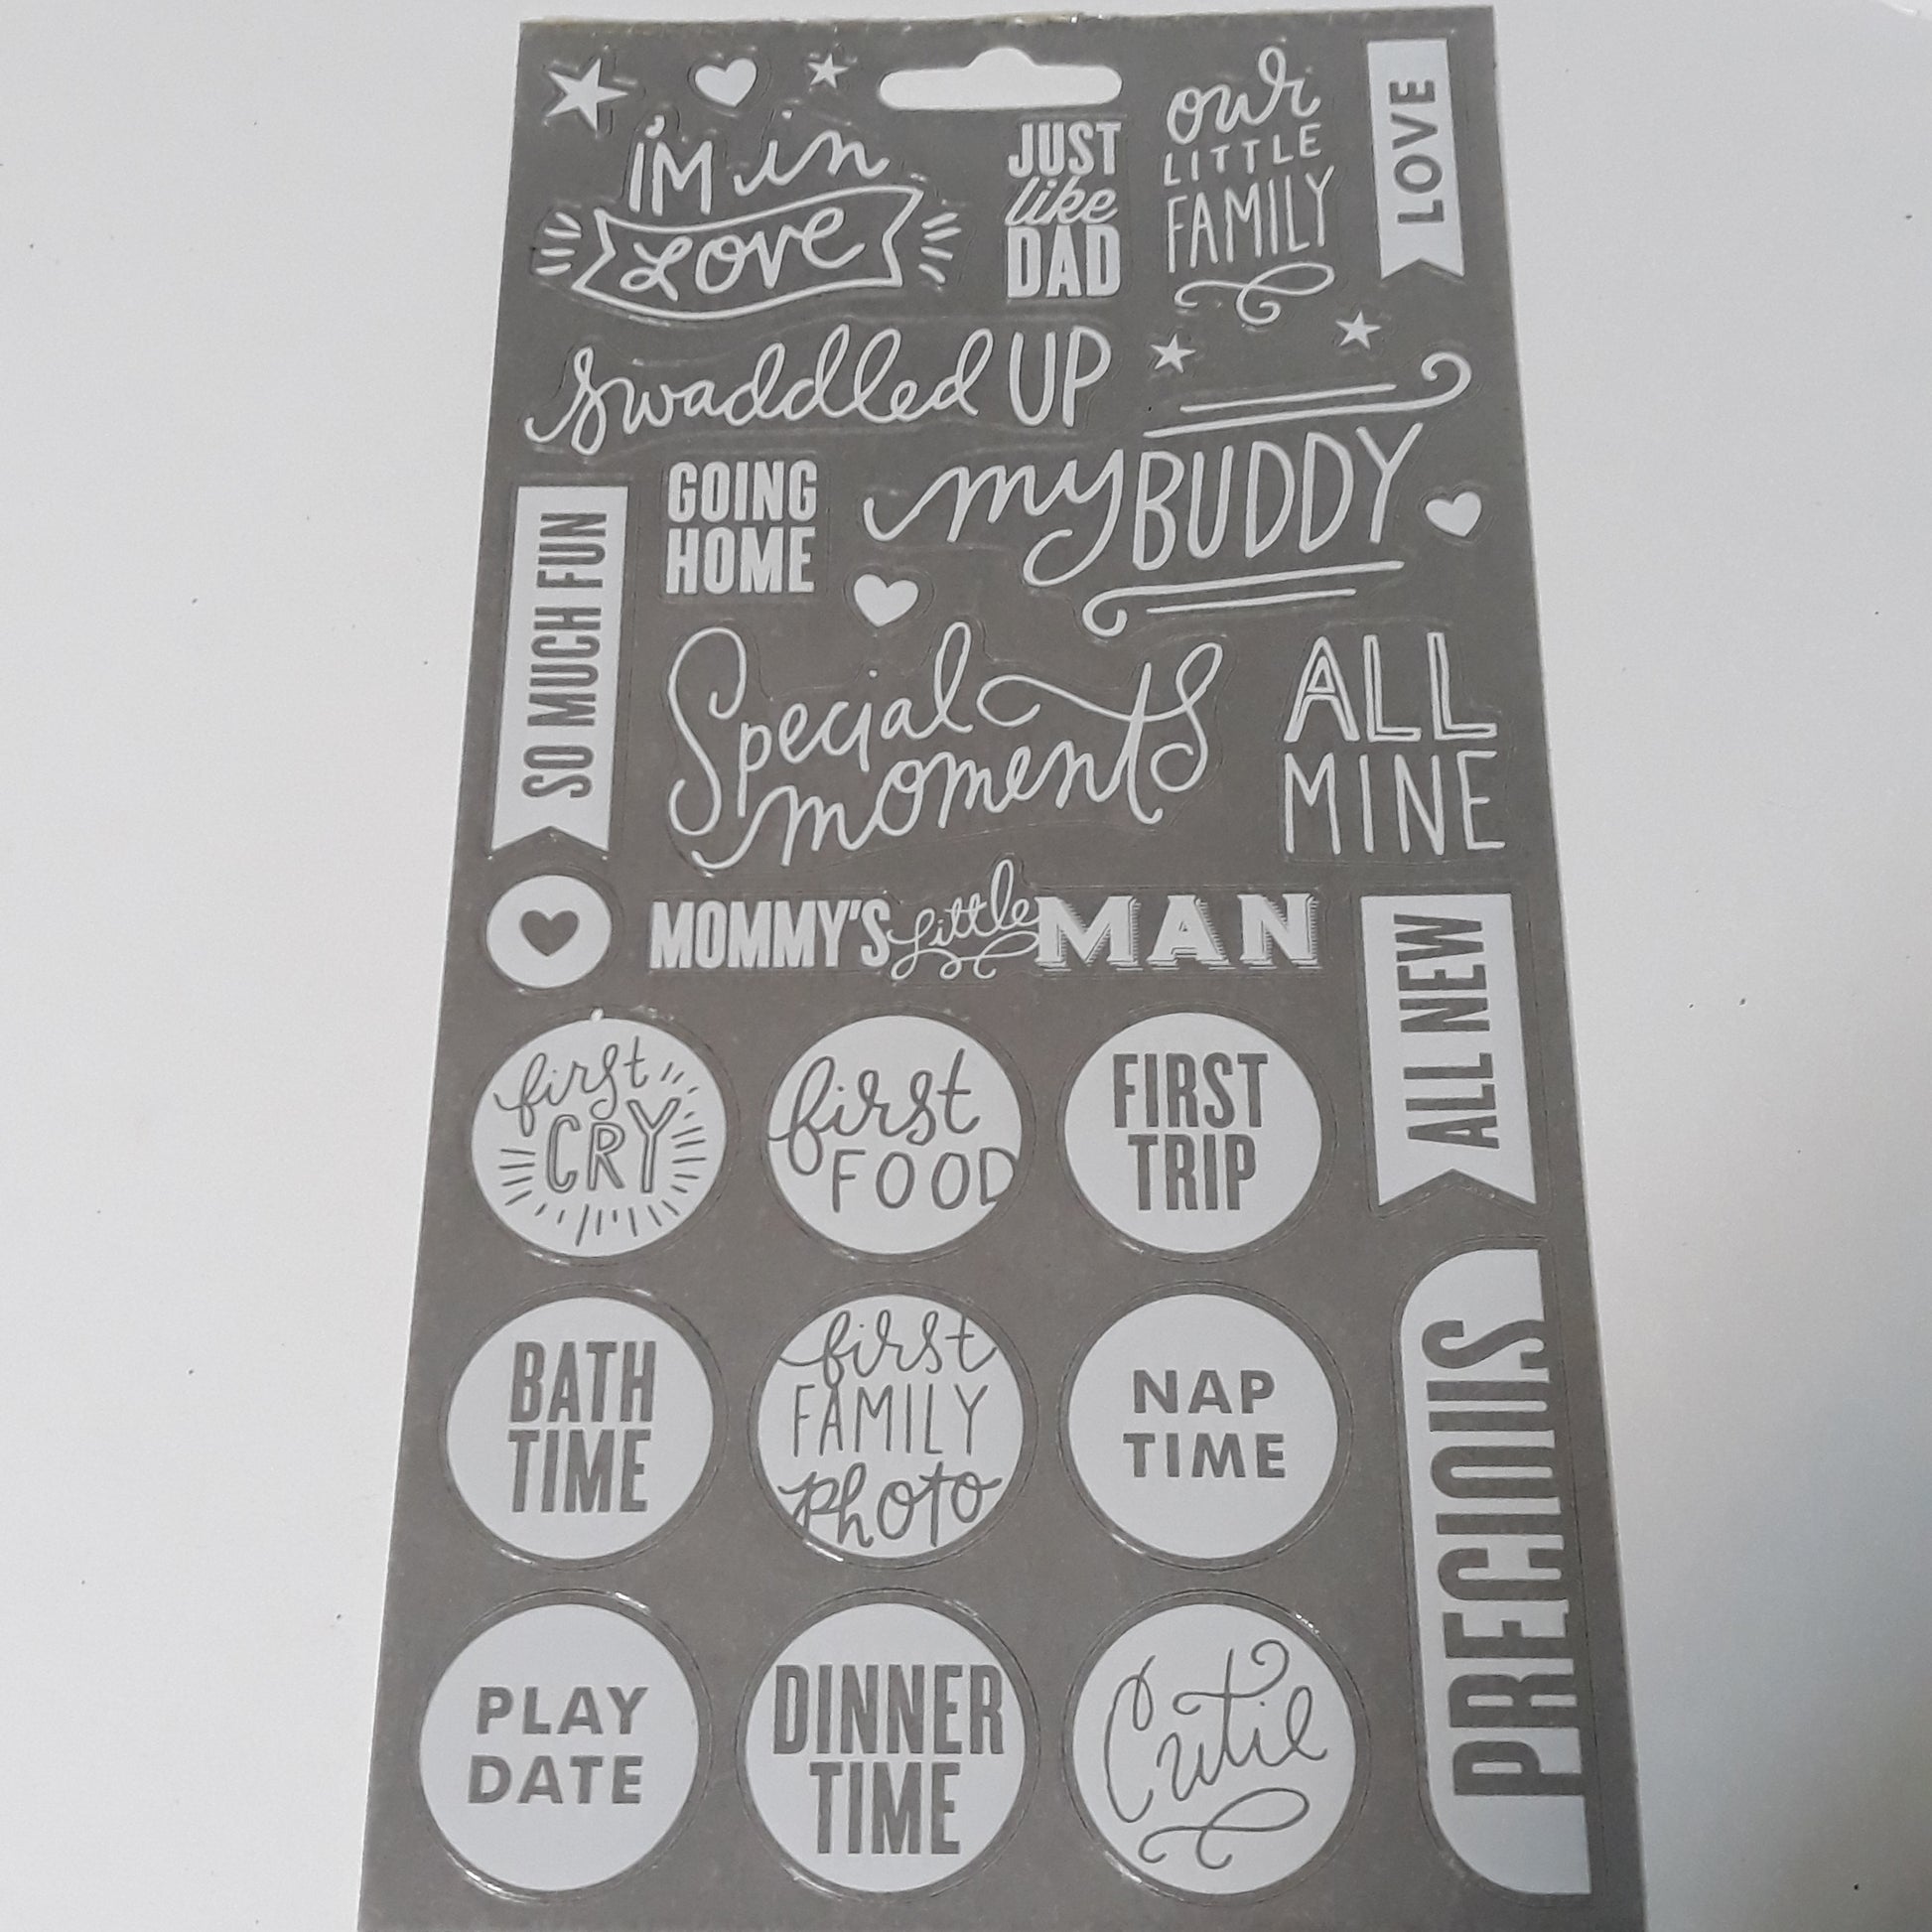 I'M in
LOVE
JUST
like
DAD
our
LITTLE
FAMILY
LOVE
swaddled UP
GOING
HOME
my BUDDY
SO MUCH FUN
Special
moments
ALL
MINE
MOMMY'S little MAN
ALL NEW
first
CRY
first
FOOD
FIRST
TRIP
BATH
TIME
first
FAMILY
photo
NAP
TIME
PRECIOUS
PLAY
DATE
DINNER
TIME
Cutie